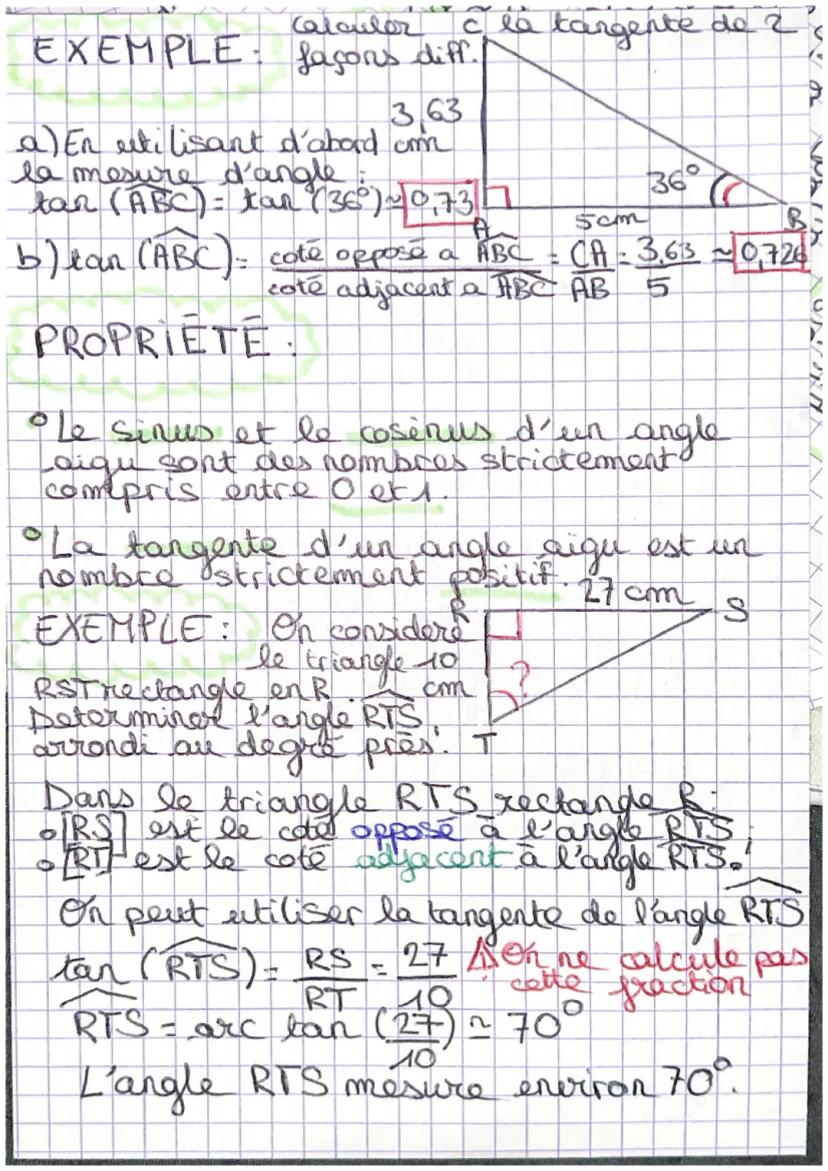 EXEMPLE : Calculer la tangente de 2
façons diff.
C
3,63
cm
36°
5cm
A
B
a) En utilisant d'abord
la mesure d'angle :
tan (ABC) = tan (36°) ≈ 0,73
b) tan (ABC) = coté opposé a ABC / coté adjacent a ABC = CA / AB = 3,63 / 5 ≈ 0,726
PROPRIÉTÉ :
• Le sinus et le cosinus d'un angle
aigu sont des nombres strictement
compris entre 0 et 1.
• La tangente d'un angle aigu est un
nombre strictement positif.
27 cm
R
S
10
cm
?
T
EXEMPLE : On considere
le triangle
RST rectangle en R.
Determiner l'angle RTS,
arrondi au degré près.
Dans le triangle RTS rectangle R :
• [RS] est le coté opposé à l'angle RTS ;
• [RT] est le coté adjacent à l'angle RTS.
On peut utiliser la tangente de l'angle RTS
tan (RTS) = RS / RT = 27 / 10
⚠ On ne calcule pas
cette fraction
RTS = arc tan (27/10) ≃ 70°
L'angle RTS mesure environ 70°.